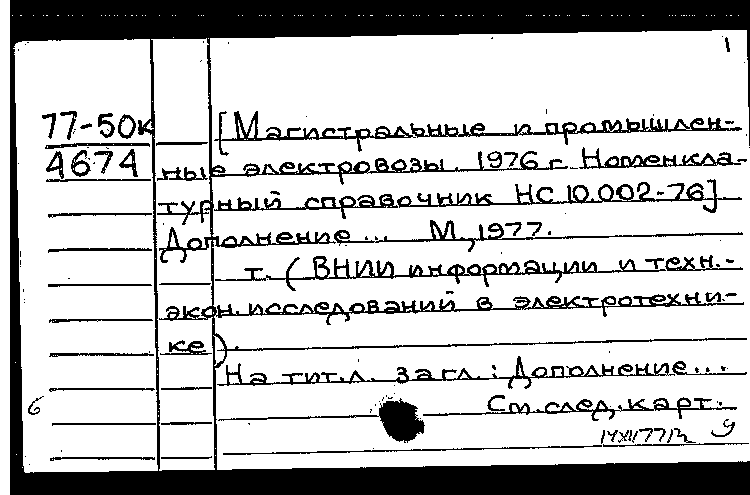 1
77-50к [Магистральные и промышлен-
4674 ные электровозы. 1976 г. Номенкла-
турный справочник НС 10.002-76]
Дополнение... М., 1977.
т. (ВНИИ информации и техн.-
экон. исследований в электротехни-
ке).
На тит.л. загл.: Дополнение...
6 См. след. карт.